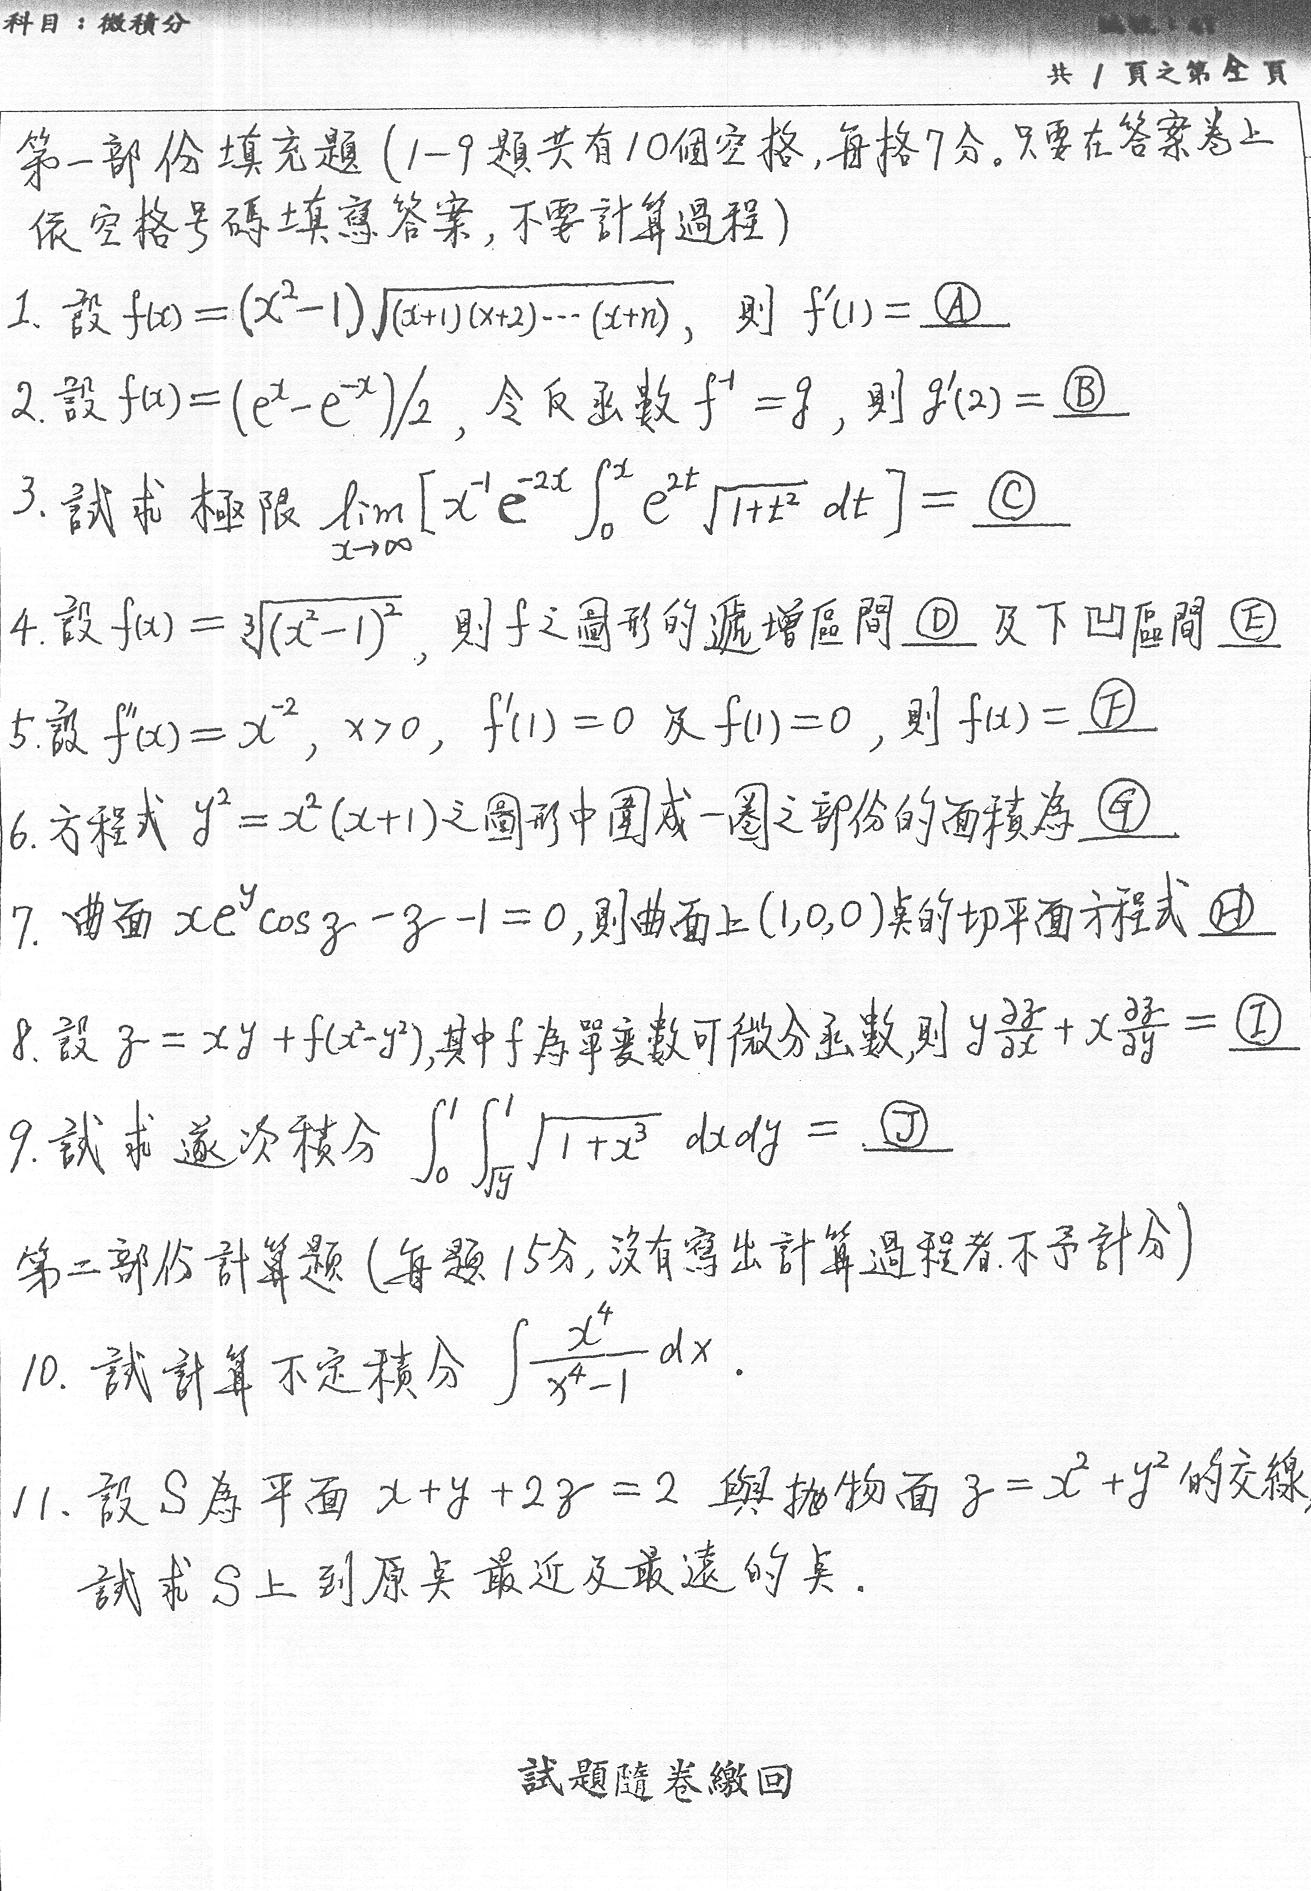 科目：微積分
共 1 頁之第 全 頁
第一部份填充題（1-9題共有10個空格，每格7分。只要在答案卷上
依空格号碼填寫答案，不要計算過程）
1. 設 f(x) = (x²-1)√((x+1)(x+2)⋯(x+n))，則 f'(1) = Ⓐ
2. 設 f(x) = (eˣ - e⁻ˣ)/2，令反函數 f⁻¹ = g，則 g'(2) = Ⓑ
3. 試求極限 lim_{x→∞} [x⁻¹ e⁻²ˣ ∫₀ˣ e²ᵗ √(1+t²) dt] = Ⓒ
4. 設 f(x) = ∛((x²-1)²)，則 f 之圖形的遞增區間 Ⓓ 及下凹區間 Ⓔ
5. 設 f''(x) = x⁻²，x>0，f'(1) = 0 及 f(1) = 0，則 f(x) = Ⓕ
6. 方程式 y² = x²(x+1) 之圖形中圍成一圈之部份的面積為 Ⓖ
7. 曲面 xeʸcos z - z - 1 = 0，則曲面上 (1,0,0) 点的切平面方程式 Ⓗ
8. 設 z = xy + f(x²-y²)，其中 f 為單變數可微分函數，則 y ∂z/∂x + x ∂z/∂y = Ⓘ
9. 試求逐次積分 ∫₀¹ ∫_{√y}¹ √(1+x³) dxdy = Ⓙ
第二部份計算題（每題15分，沒有寫出計算過程者不予計分）
10. 試計算不定積分 ∫ x⁴/(x⁴-1) dx.
11. 設 S 為平面 x+y+2z = 2 與拋物面 z = x²+y² 的交線，
試求 S 上到原点最近及最遠的点.
試題隨卷繳回